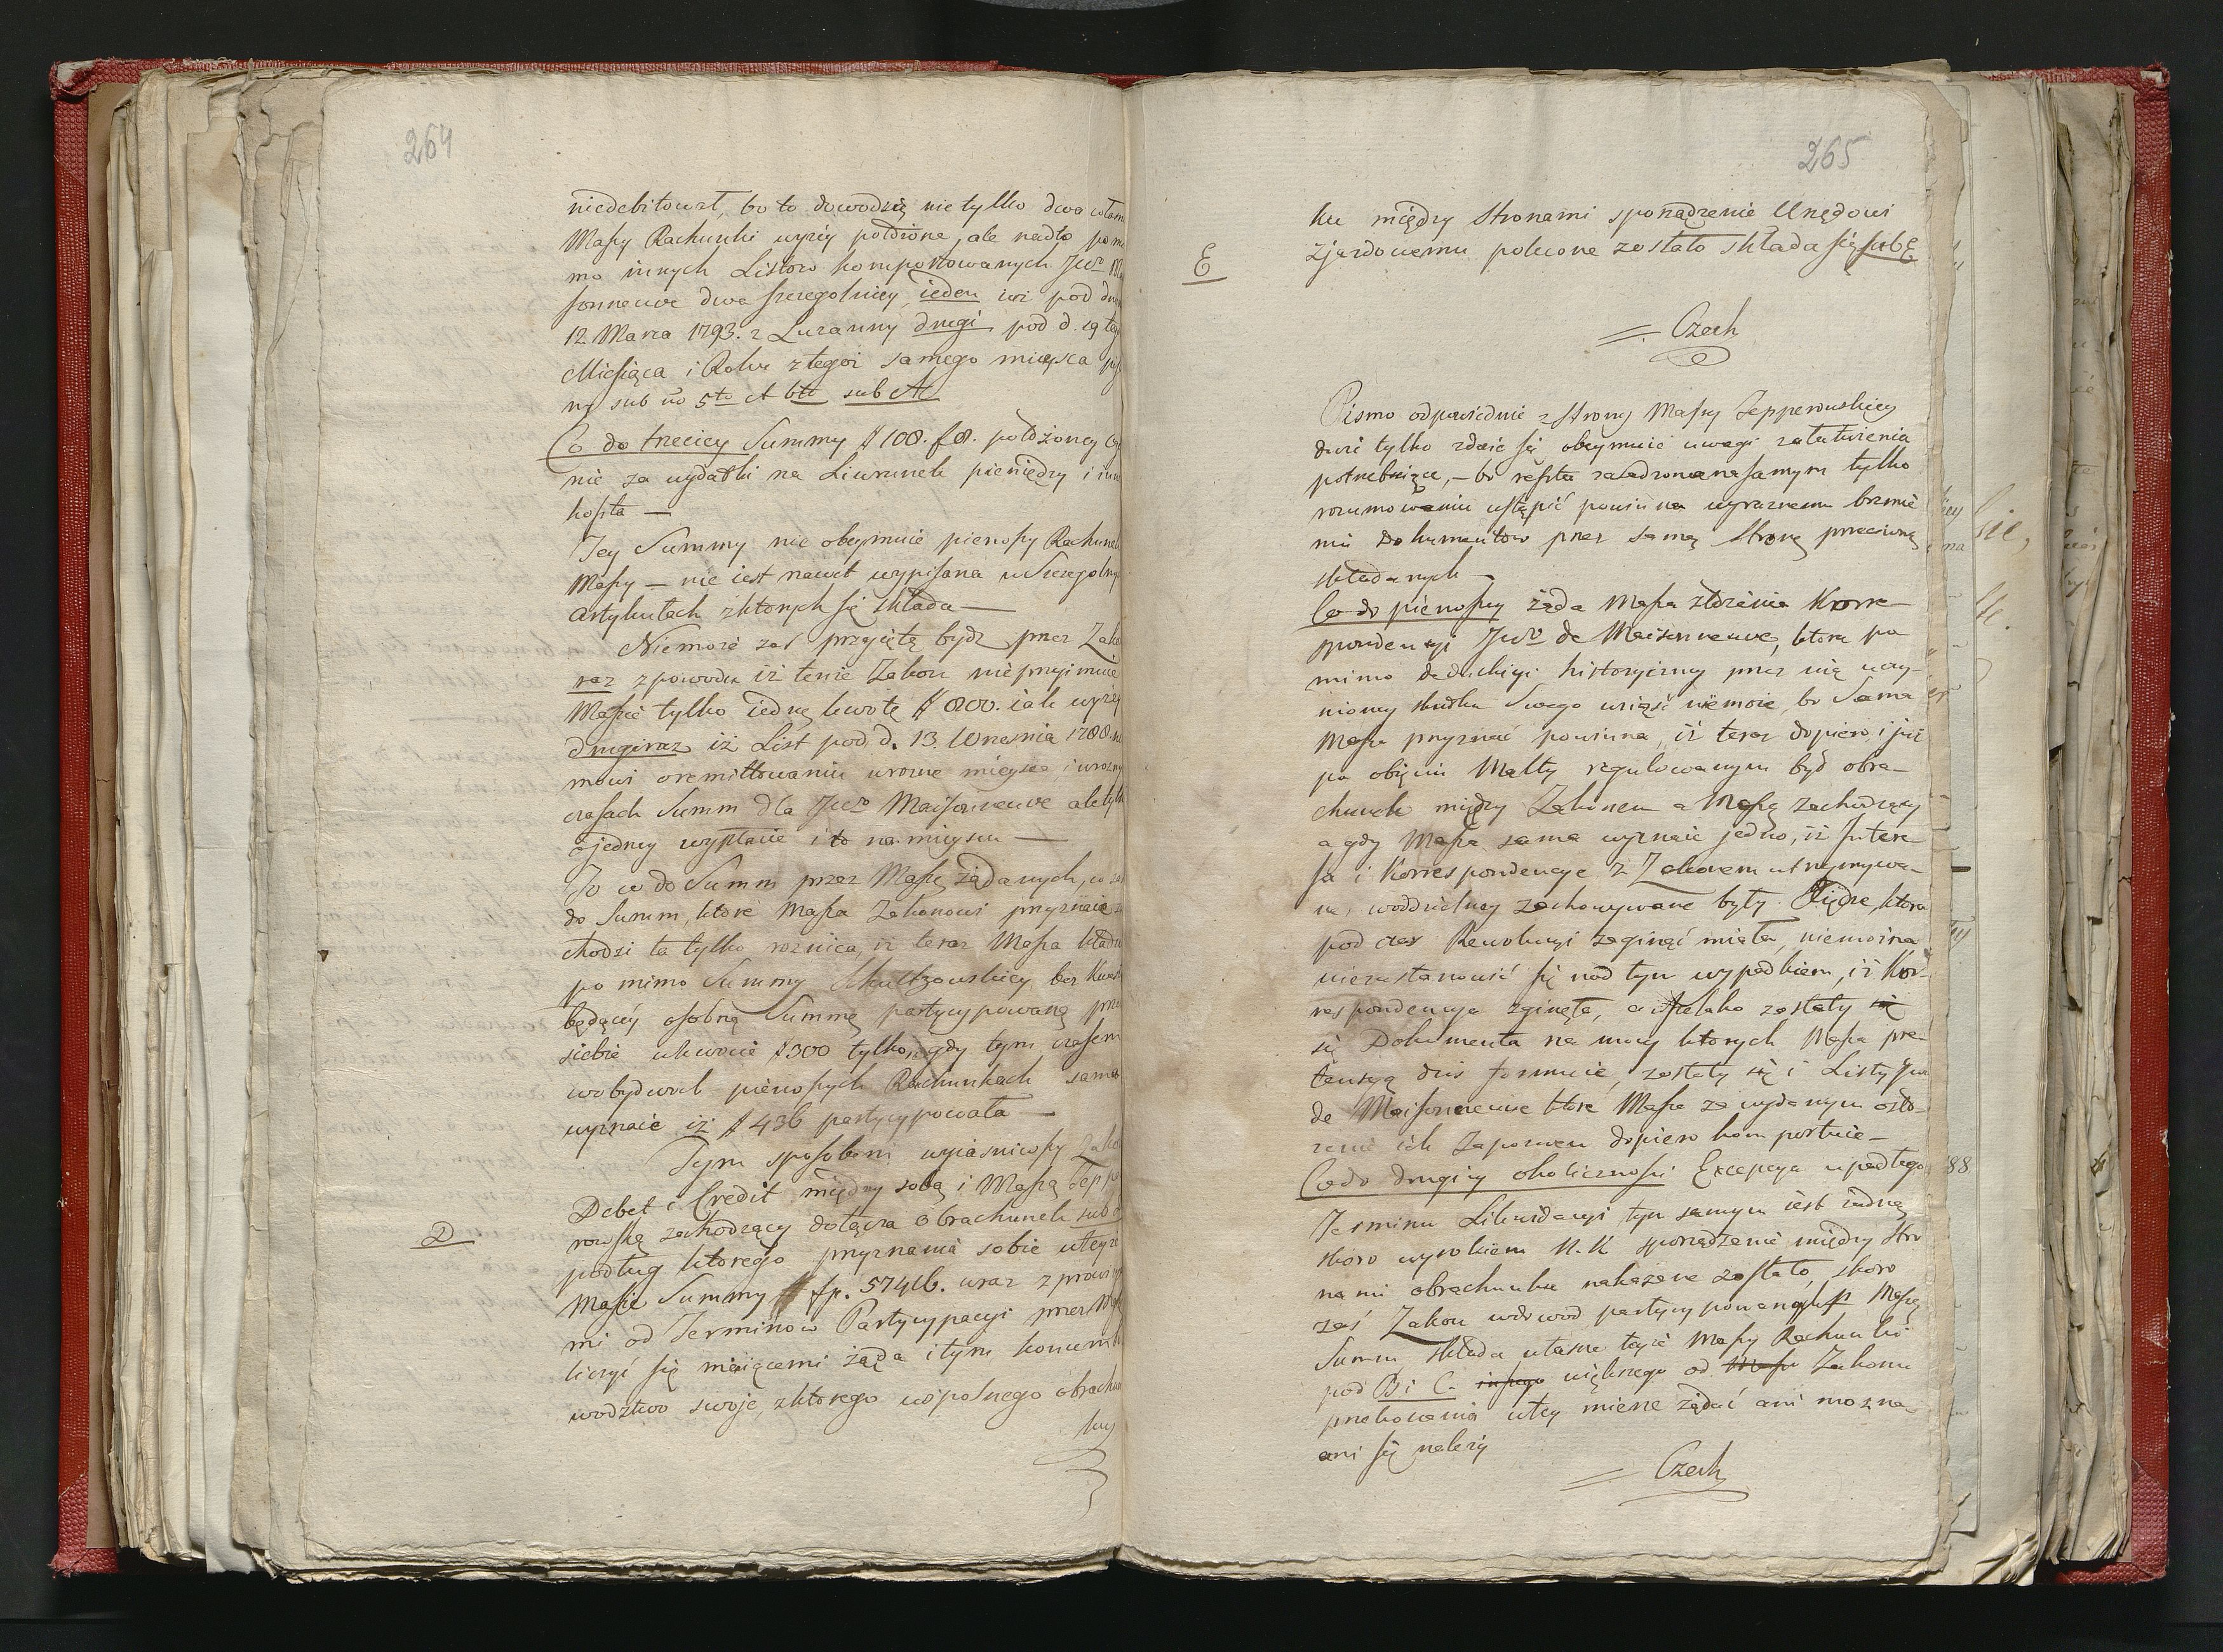 264
niedebitował, bo to dowodzą nie tylko dwa
Massy Rachunki wyżey położone, ale nadto
innych Listow komportowanych JWo
sonneuve dwa szczegolniey, ieden iest pod
12 Marca 1793. z Luzanny drugi pod d. 19
Miesiąca i Roku z tegoż samego mieysca
sub no 5to et 6to sub A
Co do trzeciey Summy # 108. f 8. położoney
nie za wydatki na Liwrunek pieniędzy i
koszta —
Tey Summy nie obeymuie pierwszy
Massy — nie iest nawet wypisana w
artykułach z ktorych się składa —
Niemoże zaś przyiętą bydz przez
raz z powodu iż tenże Zakon nieprzyimuie
Massie tylko iedną kwotę # 800. iak wyżey
drugiraz iż List pod d. 13. Wrzesnia 1788
mowi o remittowaniu w rożne mieysca i
czasach Summ dla JWo Maisonneuve ale
o jedney wypłacie i to na mieyscu —
To co do Summ przez Massę żądanych,
do Summ, które Massa Zakonowi przyznaie
chodzi ta tylko roznica, iż teraz Massa kładzie
po mimo Summy Schultzowskiey bez
będącey osobną Summę partycypowaną
siebie w kwocie # 300 tylko, gdy tym czasem
w obydwoch pierwszych Rachunkach sama
wyznaie iż # 436 partycypowała —
Tym sposobem wyiasniwszy
D
Debet i Credit między sobą i Massą
rowską zachodzący dołącza obrachunek sub
podług ktorego przyznania sobie w teyże
Massie Summy fp. 57416. wraz z
mi od Terminow Partycypacyi przez
liczyć się maiącemi żąda i tym koncem
wodztwo swoje, z ktorego wspolnego
ku
265
ku między Stronami sporządzenie Urzędowi
E
Zjazdowemu polecone zostało składa się sub E
Czech
Pismo odpowiednie z Strony Massy Tepperowskiey
dwie tylko zdaie się obeymuie uwagi załatwienia
potrzebuiące, — bo reszta zasadzona na samym tylko
rozumowaniu ustąpić powinna wyraznemu brzmie
niu Dokumentow przez samą Stronę przeciwną
składanych —
Co do pierwszey żąda Massa złożenia Korre
spondencyi JWo de Maisonneuve, ktora po
mimo dedukcyi historyczney przez nią uczy-
nioney skutku swego wziąść niemoże, bo Sama
Massa przyznać powinna, iż teraz dopiero i już
po obięciu Malty regulowanym był obra-
chunek między Zakonem a Massą zachodzący
a gdy Massa sama wyznaie jedno, iż Intere
sa i Korrespondencye z Zakonem utrzymywa-
ne, w oddzielney zachowywane były Xiędze, ktora
pod czas Rewolucyi zaginąć miała, niemożna
niezastanowić się nad tym wypadkiem, iż Kor-
respondencya zginęła, a wszelako zostały
się Dokumenta na mocy ktorych Massa pre-
tensyą dziś formuie, zostały się i Listy
de Maisonneuve ktore Massa za wydanym o zło-
żenie ich Zapozwem dopiero komportuie —
Co do drugiey okoliczności Excepcya upadłego
Terminu Likwidacyi tym samym iest żadną
skoro wyrokiem N. K. sporządzenie między Stro
nami obrachunku nakazane zostało, skoro
zaś Zakon w dowod partycypowanych p. Massę
Summ, składa własne teyże Massy Rachunki
pod B i C. większego od Zakonu
przekonania w tey mierze żądać ani można
ani się należy
Czech